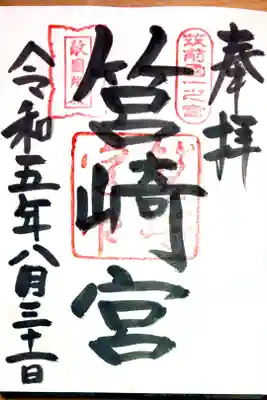 奉拝
筑前國一之宮
筥崎宮
敵國降伏
令和五年八月三十一日